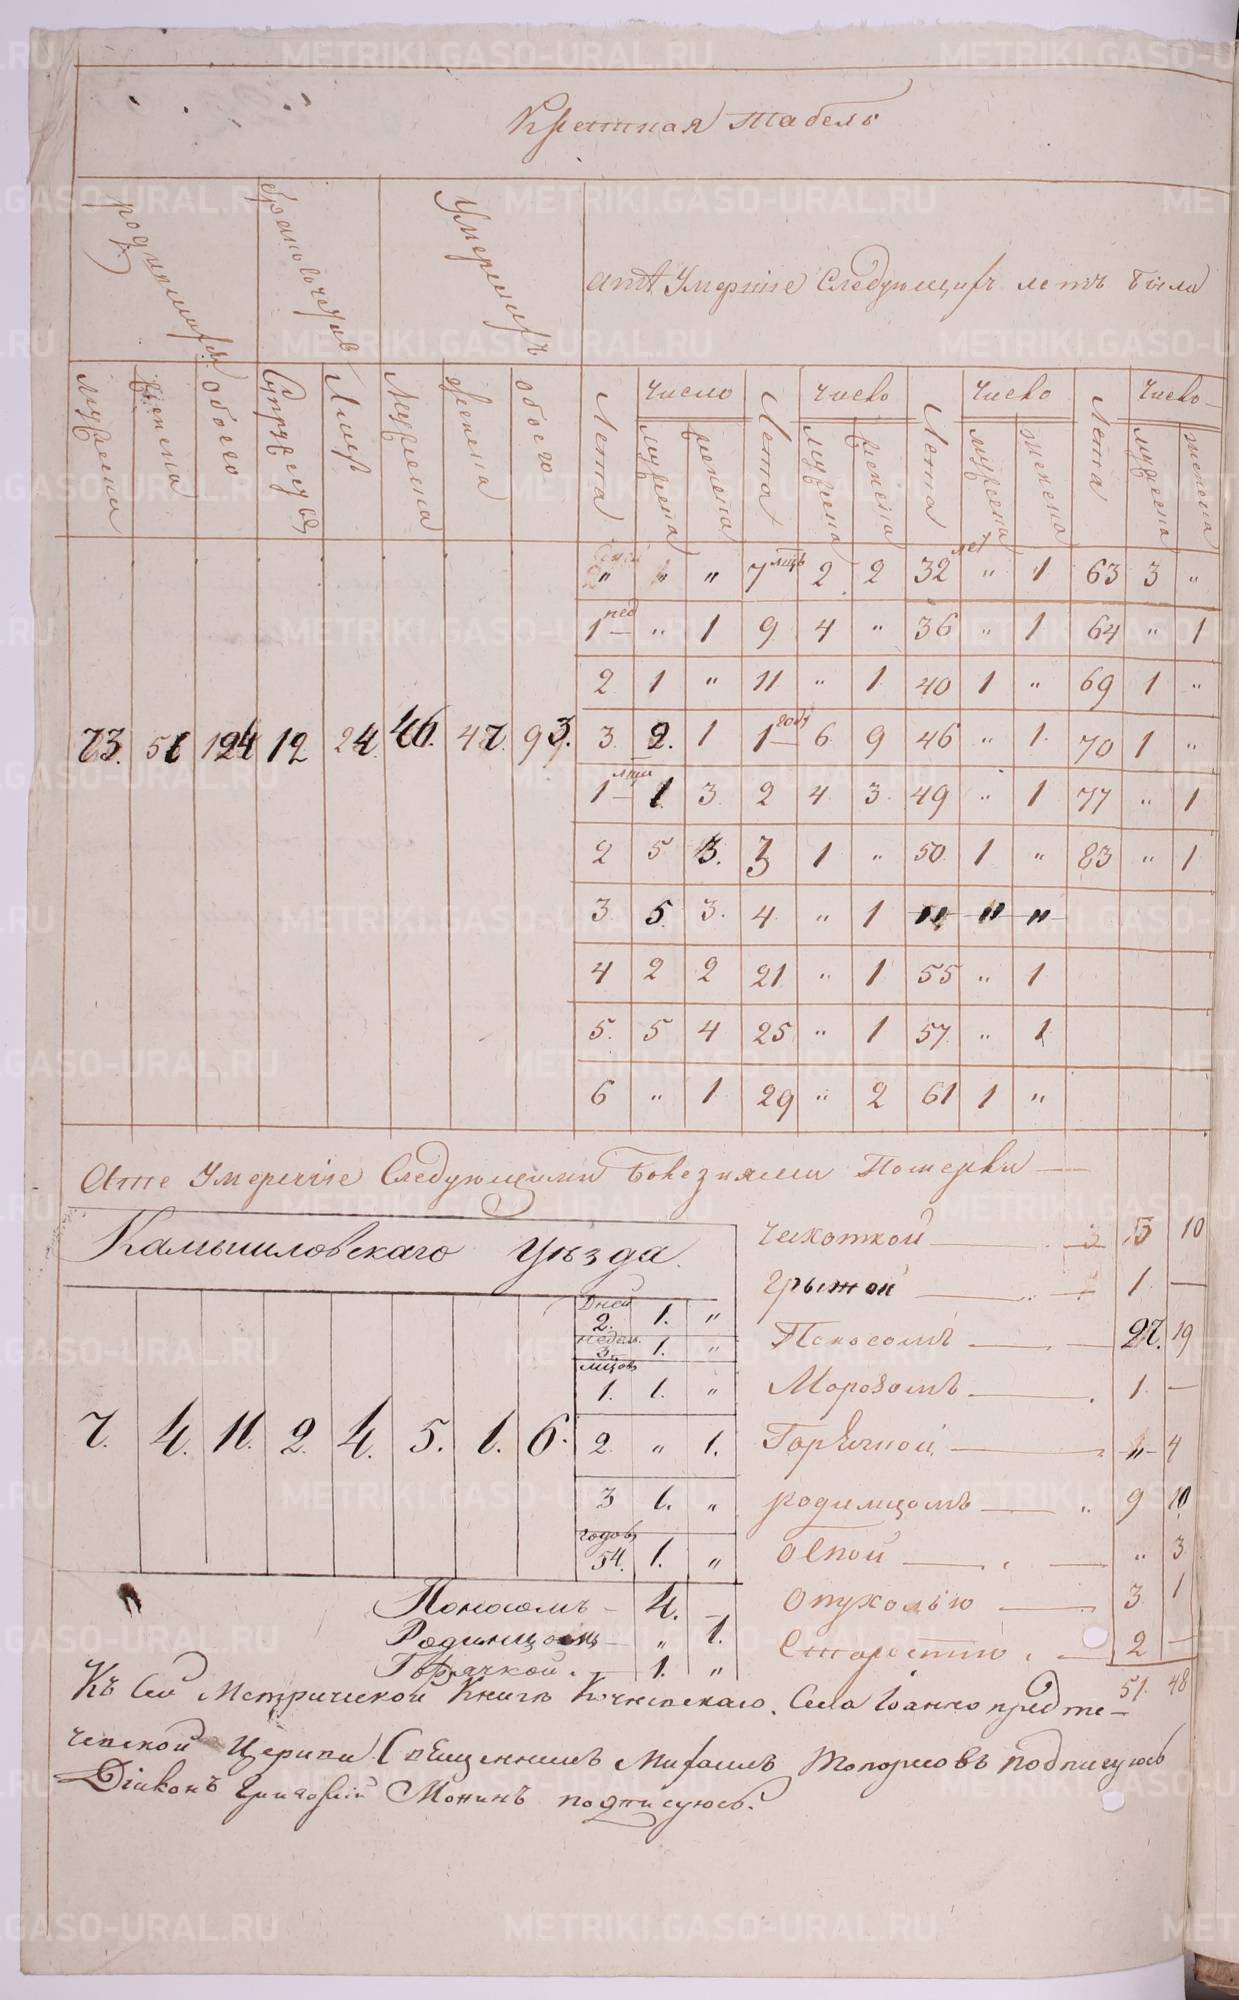 Краткая табель
родившихся
бракосочетав
Умершихъ
а те Умершіе Следующихъ летъ были
мужеска
женска
обоего
Супружествъ
Лицъ
Мужеска
женска
обоего
Лета
число
мужеска
женска
Лета
число
мужеска
женска
Лета
число
мужеска
женска
Лета
число
мужеска
женска
" " " 7 мцъ 2 2 32 лет " 1 63 3 "
1 нед " 1 9 4 " 36 " 1 64 " 1
2 1 " 11 " 1 40 1 " 69 1 "
73. 51 124 12 24 46. 47. 93. 3. 2. 1 1 году 6 9 46 " 1 70 1 "
1 мцъ 1 3 2 4 3 49 " 1 77 " 1
2 5 3. 3 1 " 50 1 " 83 " 1
3 5 3. 4 " 1 " " "
4 2 2 21 " 1 55 " 1
5. 5 4 25 " 1 57 " 1
6 " 1 29 " 2 61 1 "
А те Умершіе Следующими болезнями Померли
Камышловскаго Уезда.
Дней 2. 1. "
недел. 3. 1. "
мцов 1. 1. "
7. 4. 11. 2. 4. 5. 1. 6. 2. " 1.
3 1. "
годов 54. 1. "
Поносомъ 4. —
Родимцомъ " 1.
Горячкой. 1. "
чехоткой 10
Грыжой 1. —
Поносомъ 27. 19
Морозомъ 1 —
Горячкой " 4
родимцомъ 9 10
оспой " 3
Опухолью 3. 1
Старостию 2 —
51. 48
Къ Сей Метрической Книге Села Іанно предте-
ческой Церкви Священникъ Михаилъ Топорковъ подписуюсь
Діаконъ Григорій Монинъ подписуюсь.
METRIKI.GASO-URAL.RU